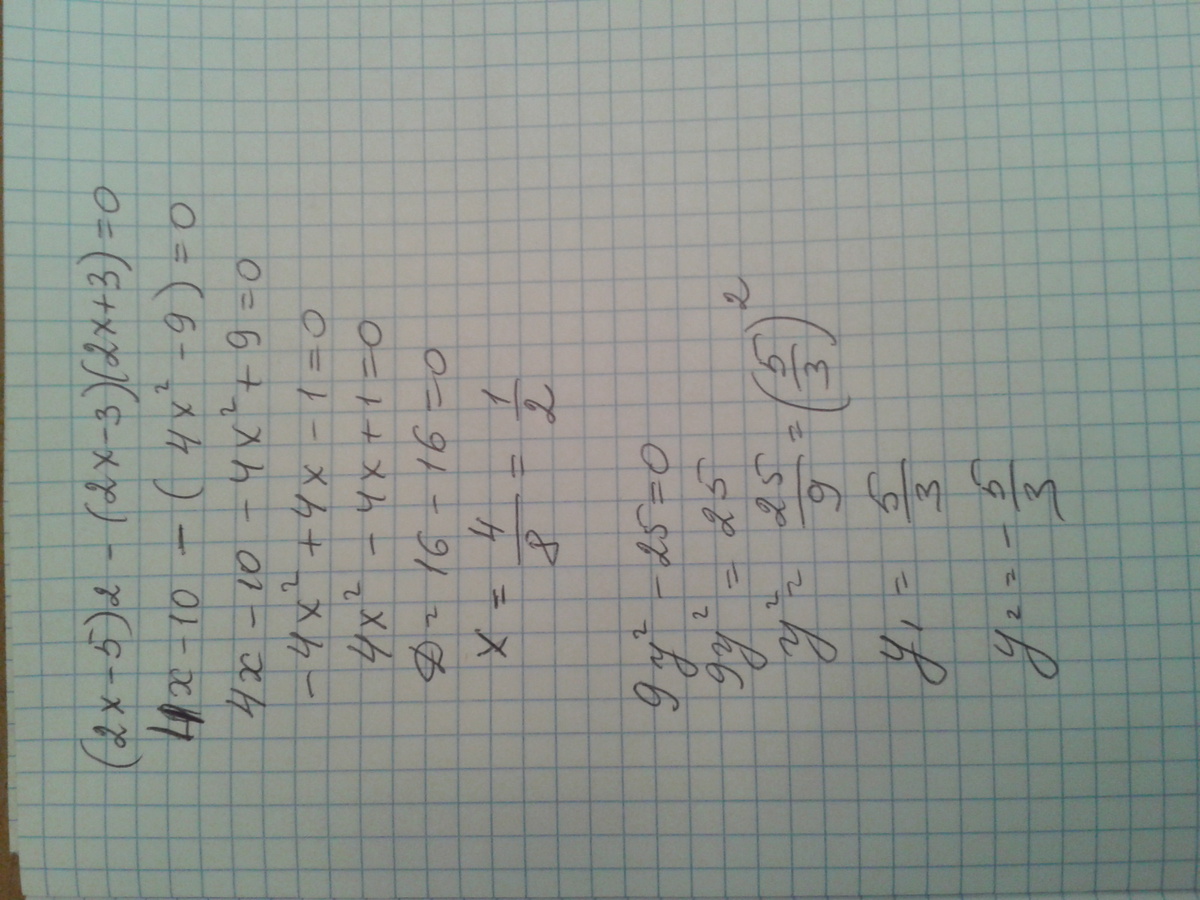 (2x-5)2-(2x-3)(2x+3)=0
4x-10-(4x²-9)=0
4x-10-4x²+9=0
-4x²+4x-1=0
4x²-4x+1=0
D=16-16=0
x=4/8=1/2
9y²-25=0
9y²=25
y²=25/9=(5/3)²
y₁=5/3
y₂=-5/3